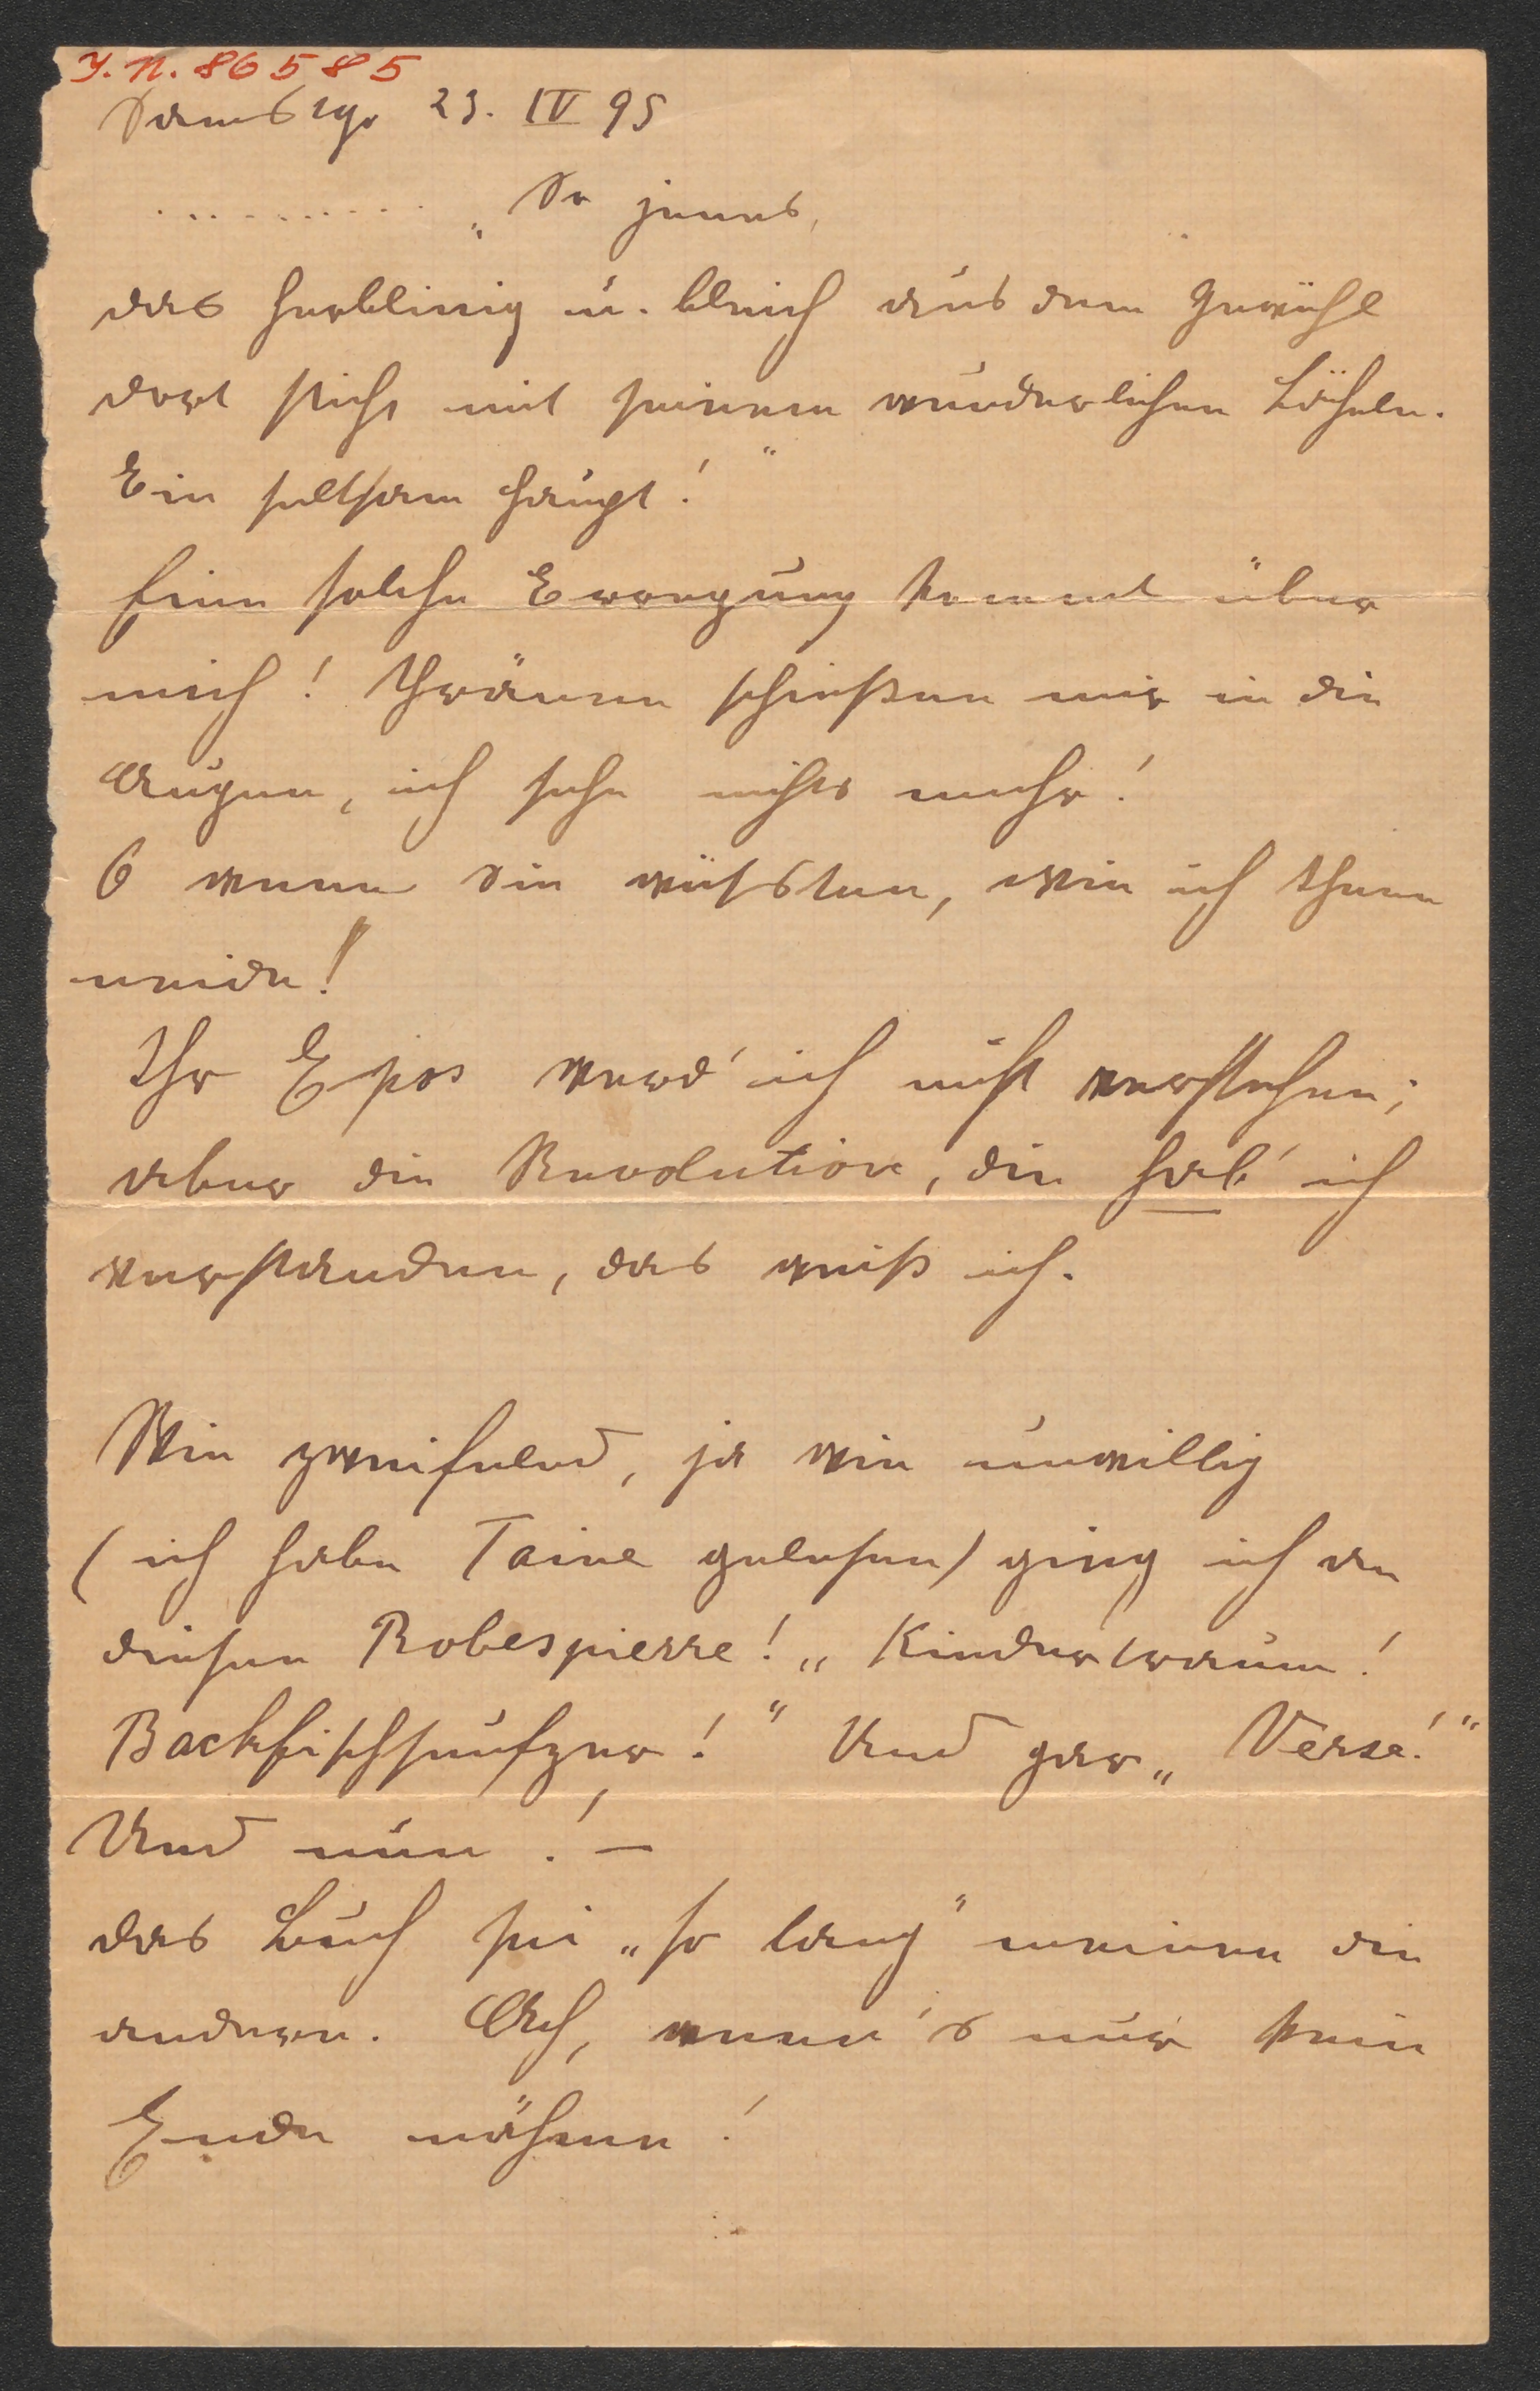 I. N. 86585
Samstg. 23. IV 95
.......... „So jenes,
das herblinig u. bleich aus dem Gewühl
dort sticht mit seinem wunderlichen Lächeln.
Ein seltsam Haupt!"
Eine solche Erregung kommt über
mich! Thränen schießen mir in die
Augen, ich sehe nichts mehr!
O wenn Sie wüssten, wie ich Ihnen
neide!
Ihr Epos werd' ich nicht verstehen;
aber die Revolution, die hab' ich
verstanden, das weiß ich.
Wie zweifelnd, ja wie unwillig
(ich habe Taine gelesen) ging ich an
diesen Robespierre! „Kindertraum!
Backfischseufzer!" Und gar „Verse!"
Und nun! –
das Buch sei „so lang" meinen die
anderen. Ach, wenn's nur kein
Ende nähme!